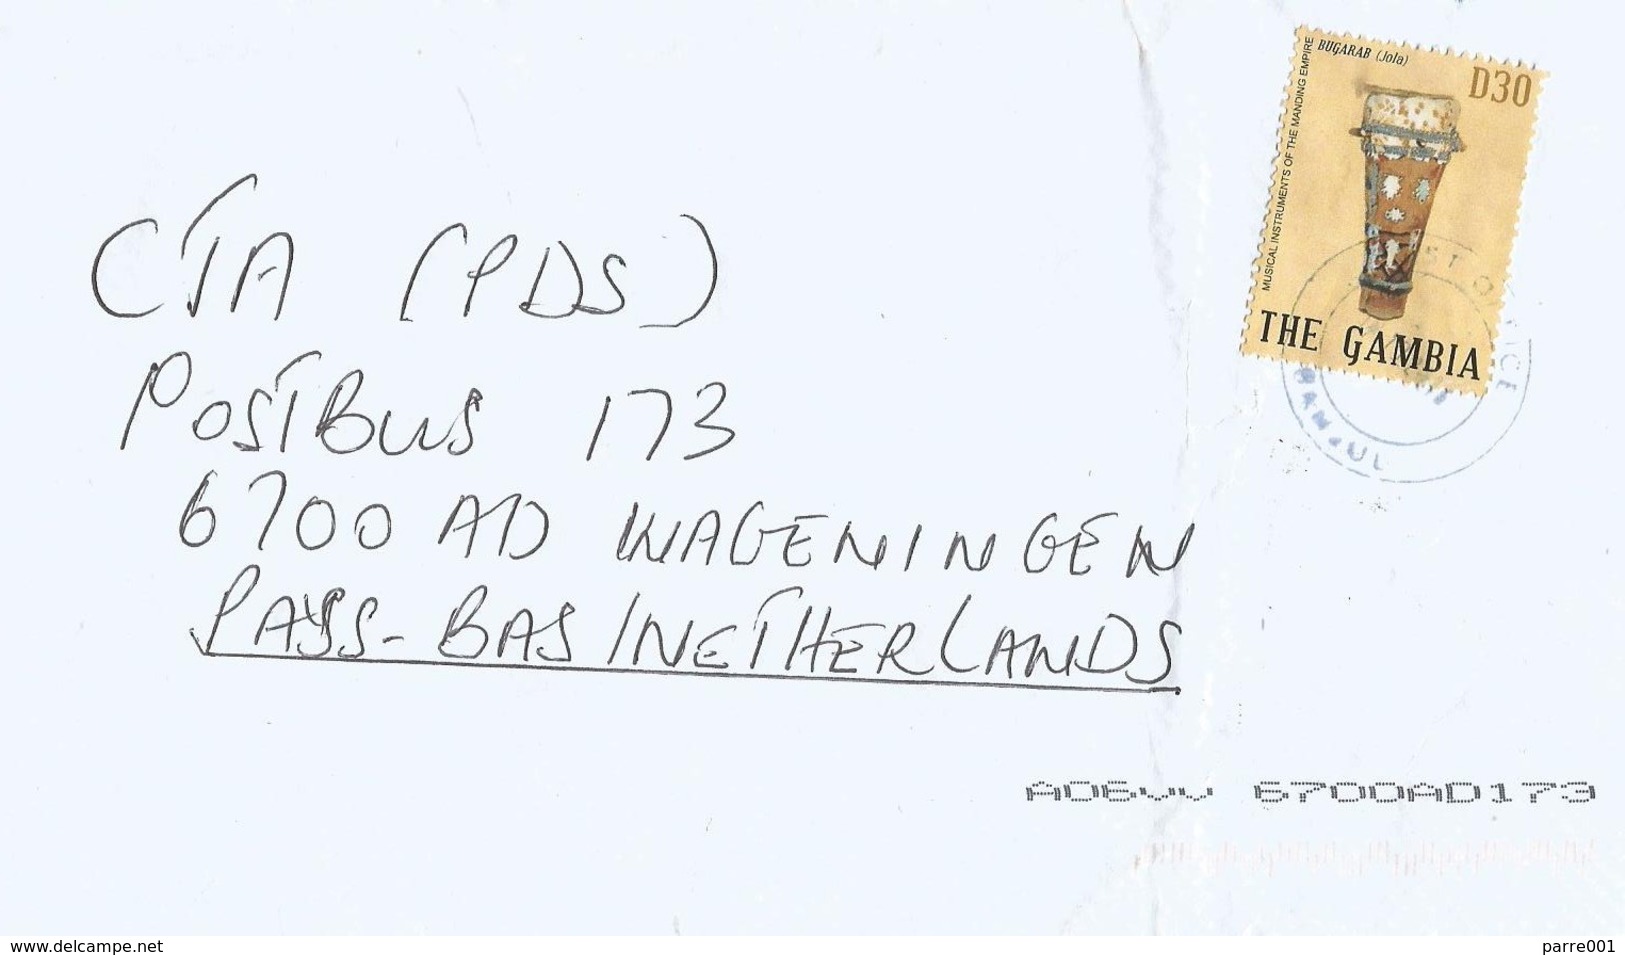 BUGARAB (Jola)
D30
MUSICAL INSTRUMENTS OF THE MANDING EMPIRE
THE GAMBIA
CTA (PDS)
POSTBUS 173
6700 AD WAGENINGEN
PAYSS-BAS/NETHERLANDS
A06vv 6700AD173
www.delcampe.net
parre001